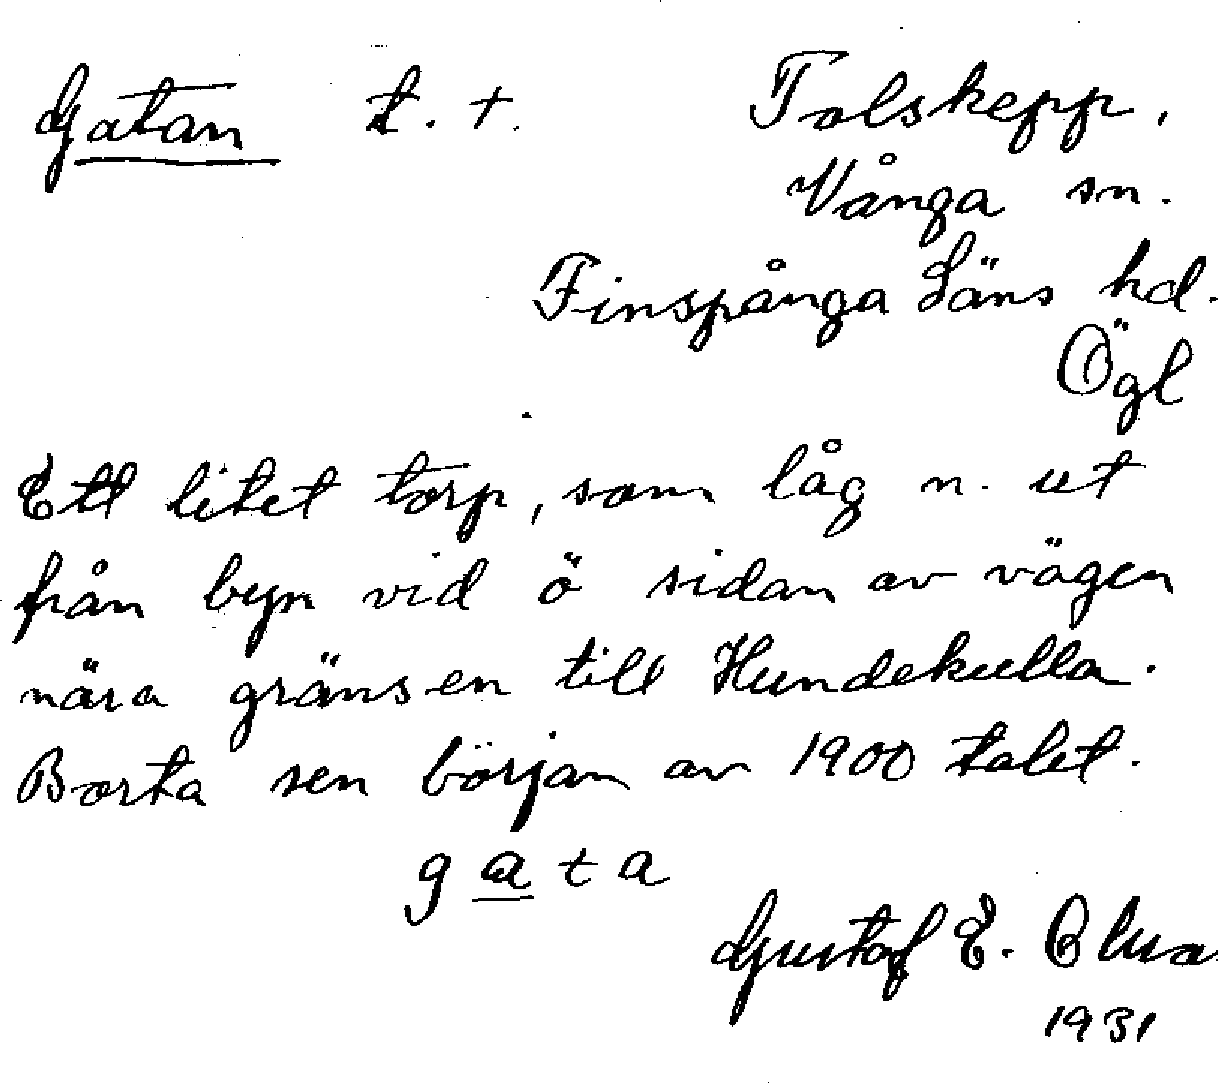 Gatan t. +. Tolskepp.
Vånga sn.
Finspånga Läns hd.
Ögl
Ett litet torp, som låg n. ut
från byn vid ö sidan av vägen
nära gränsen till Hundekulla.
Borta sen början av 1900 talet.
gata
Gustaf E.
1931